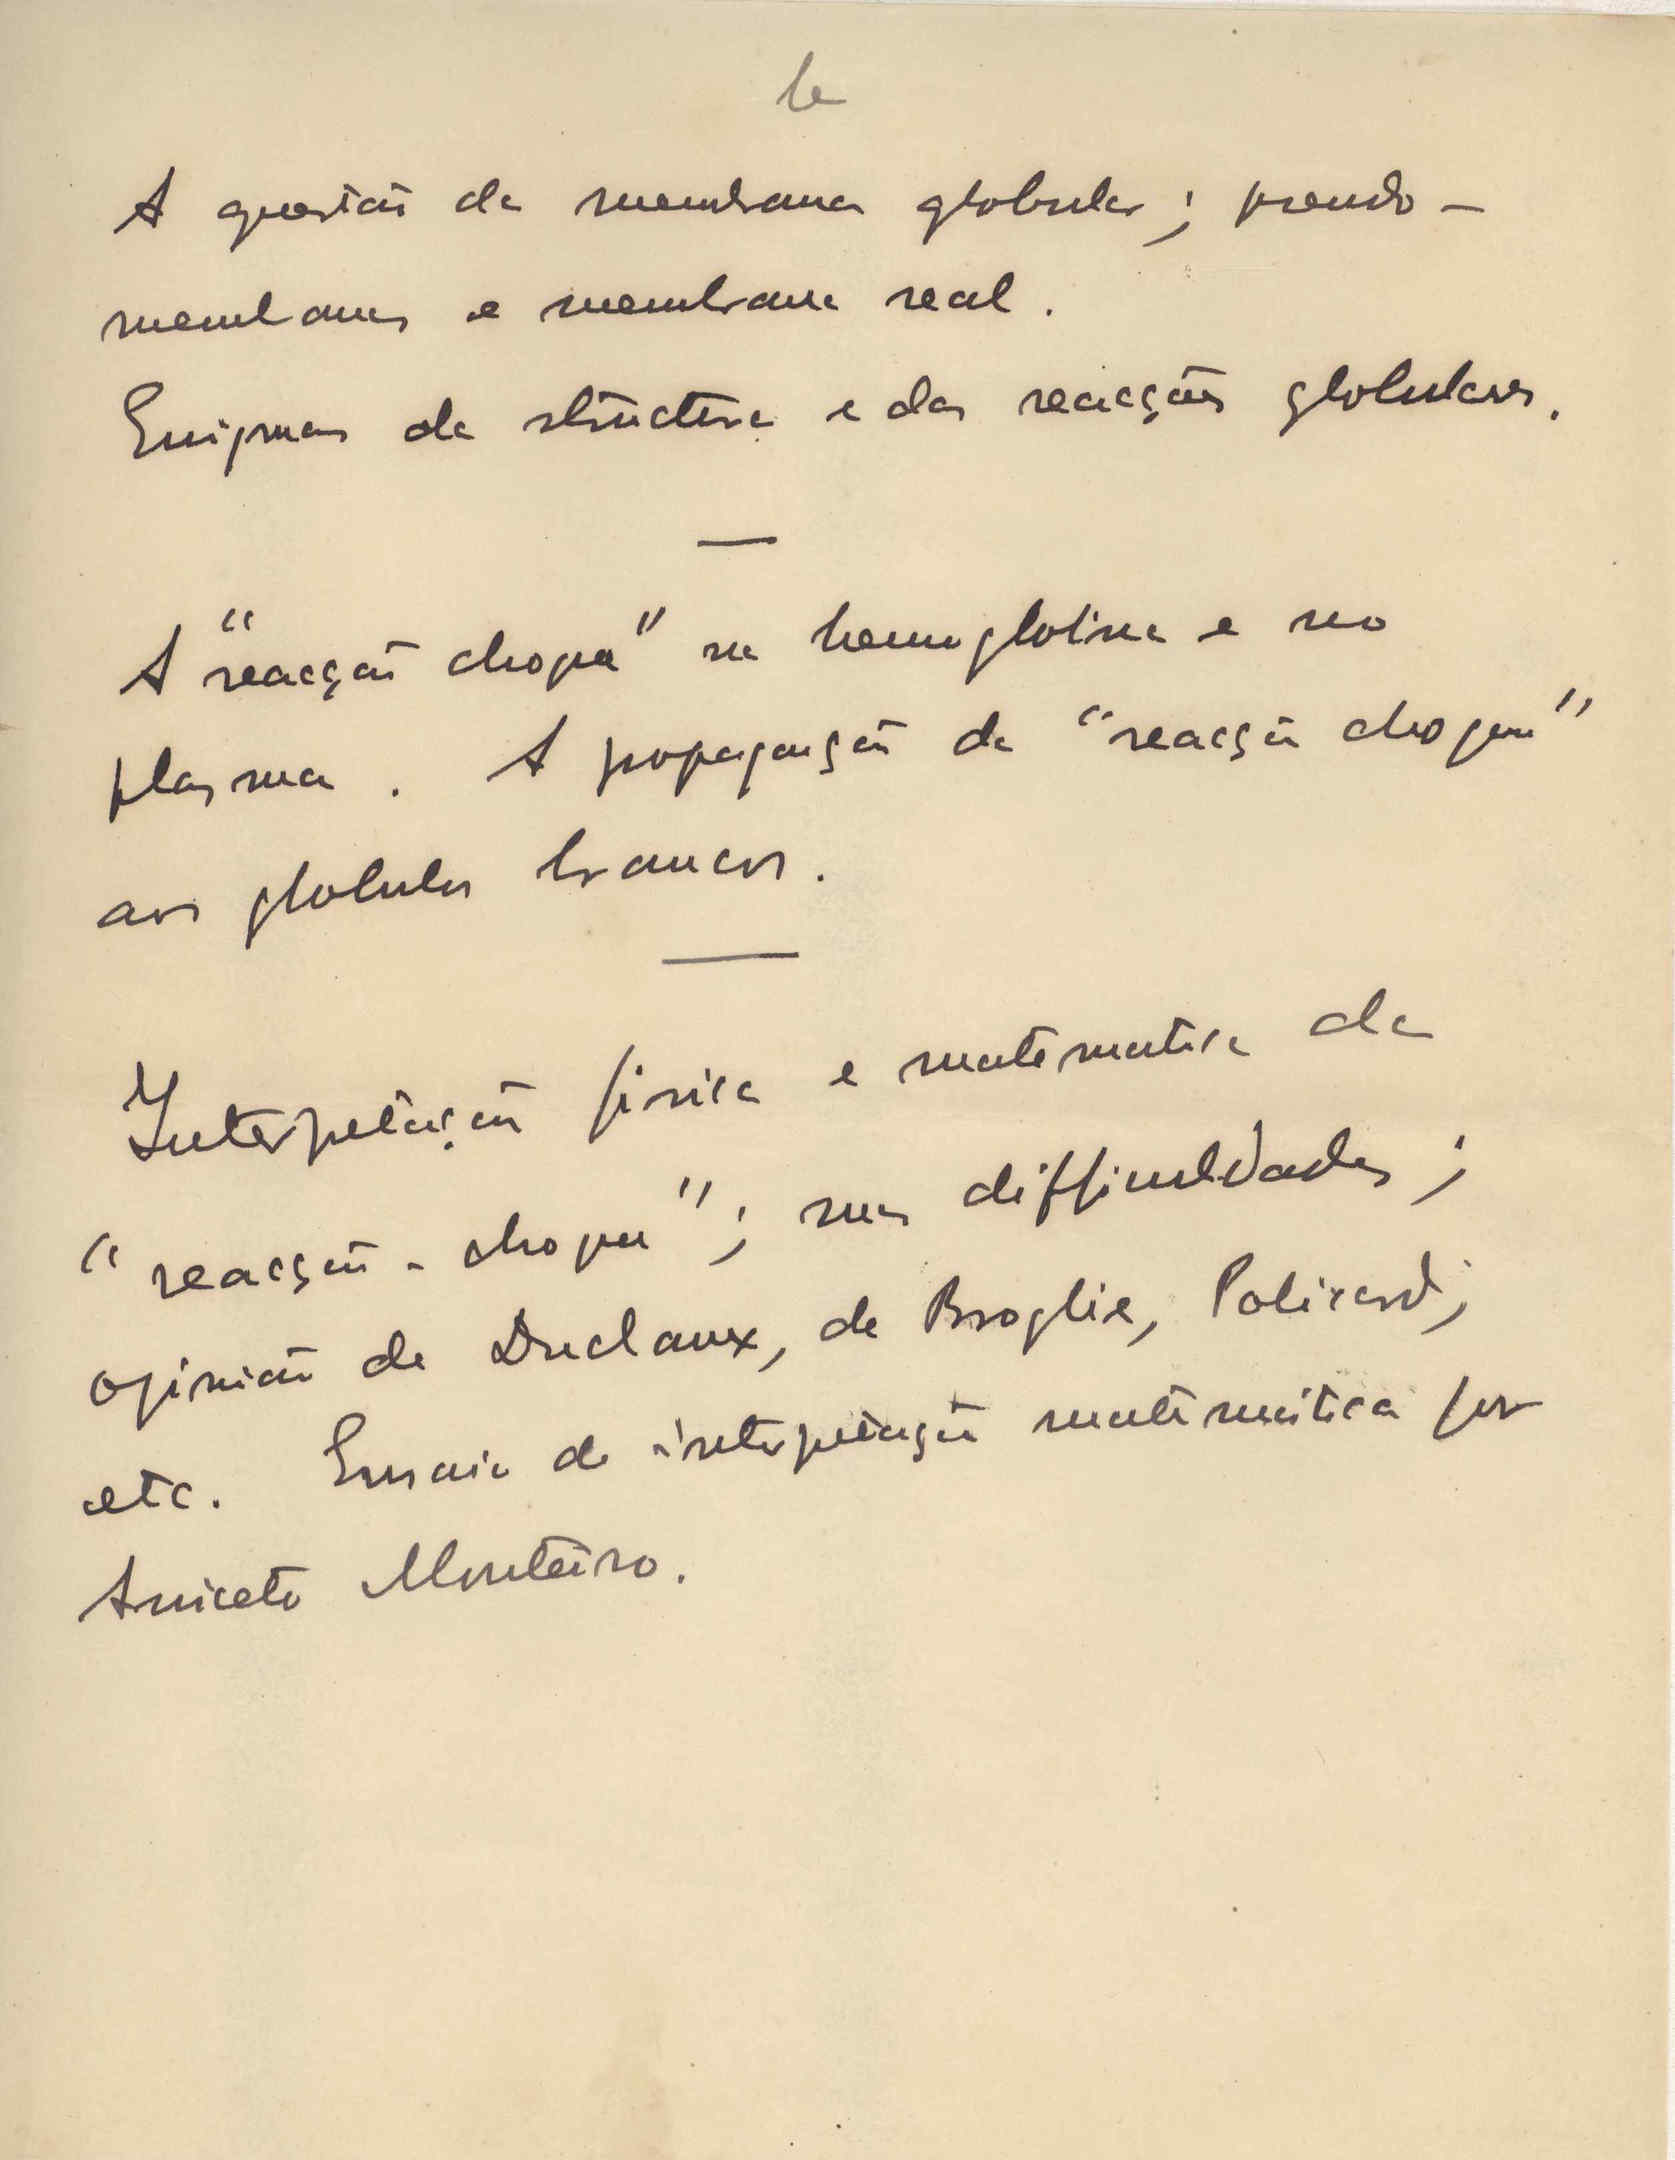 A questão da membrana globular; pseudo-
membranas e membrana real.
Enigmas da structura e das reacções globulares.
A "reacção chopa" na hemoglobina e no
plasma. A propagação da "reacção chopa"
aos globulos brancos.
Interpretação fisica e matematica da
"reacção-chopa"; suas difficuldades;
opinião de Duclaux, de Broglie, Policard,
etc. Ensaio de interpretação matemática por
Aniceto Monteiro.